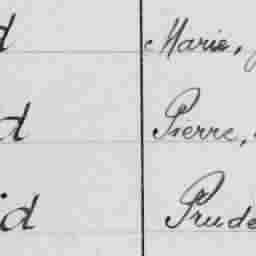 d Marie,
d Pierre,
id Prude